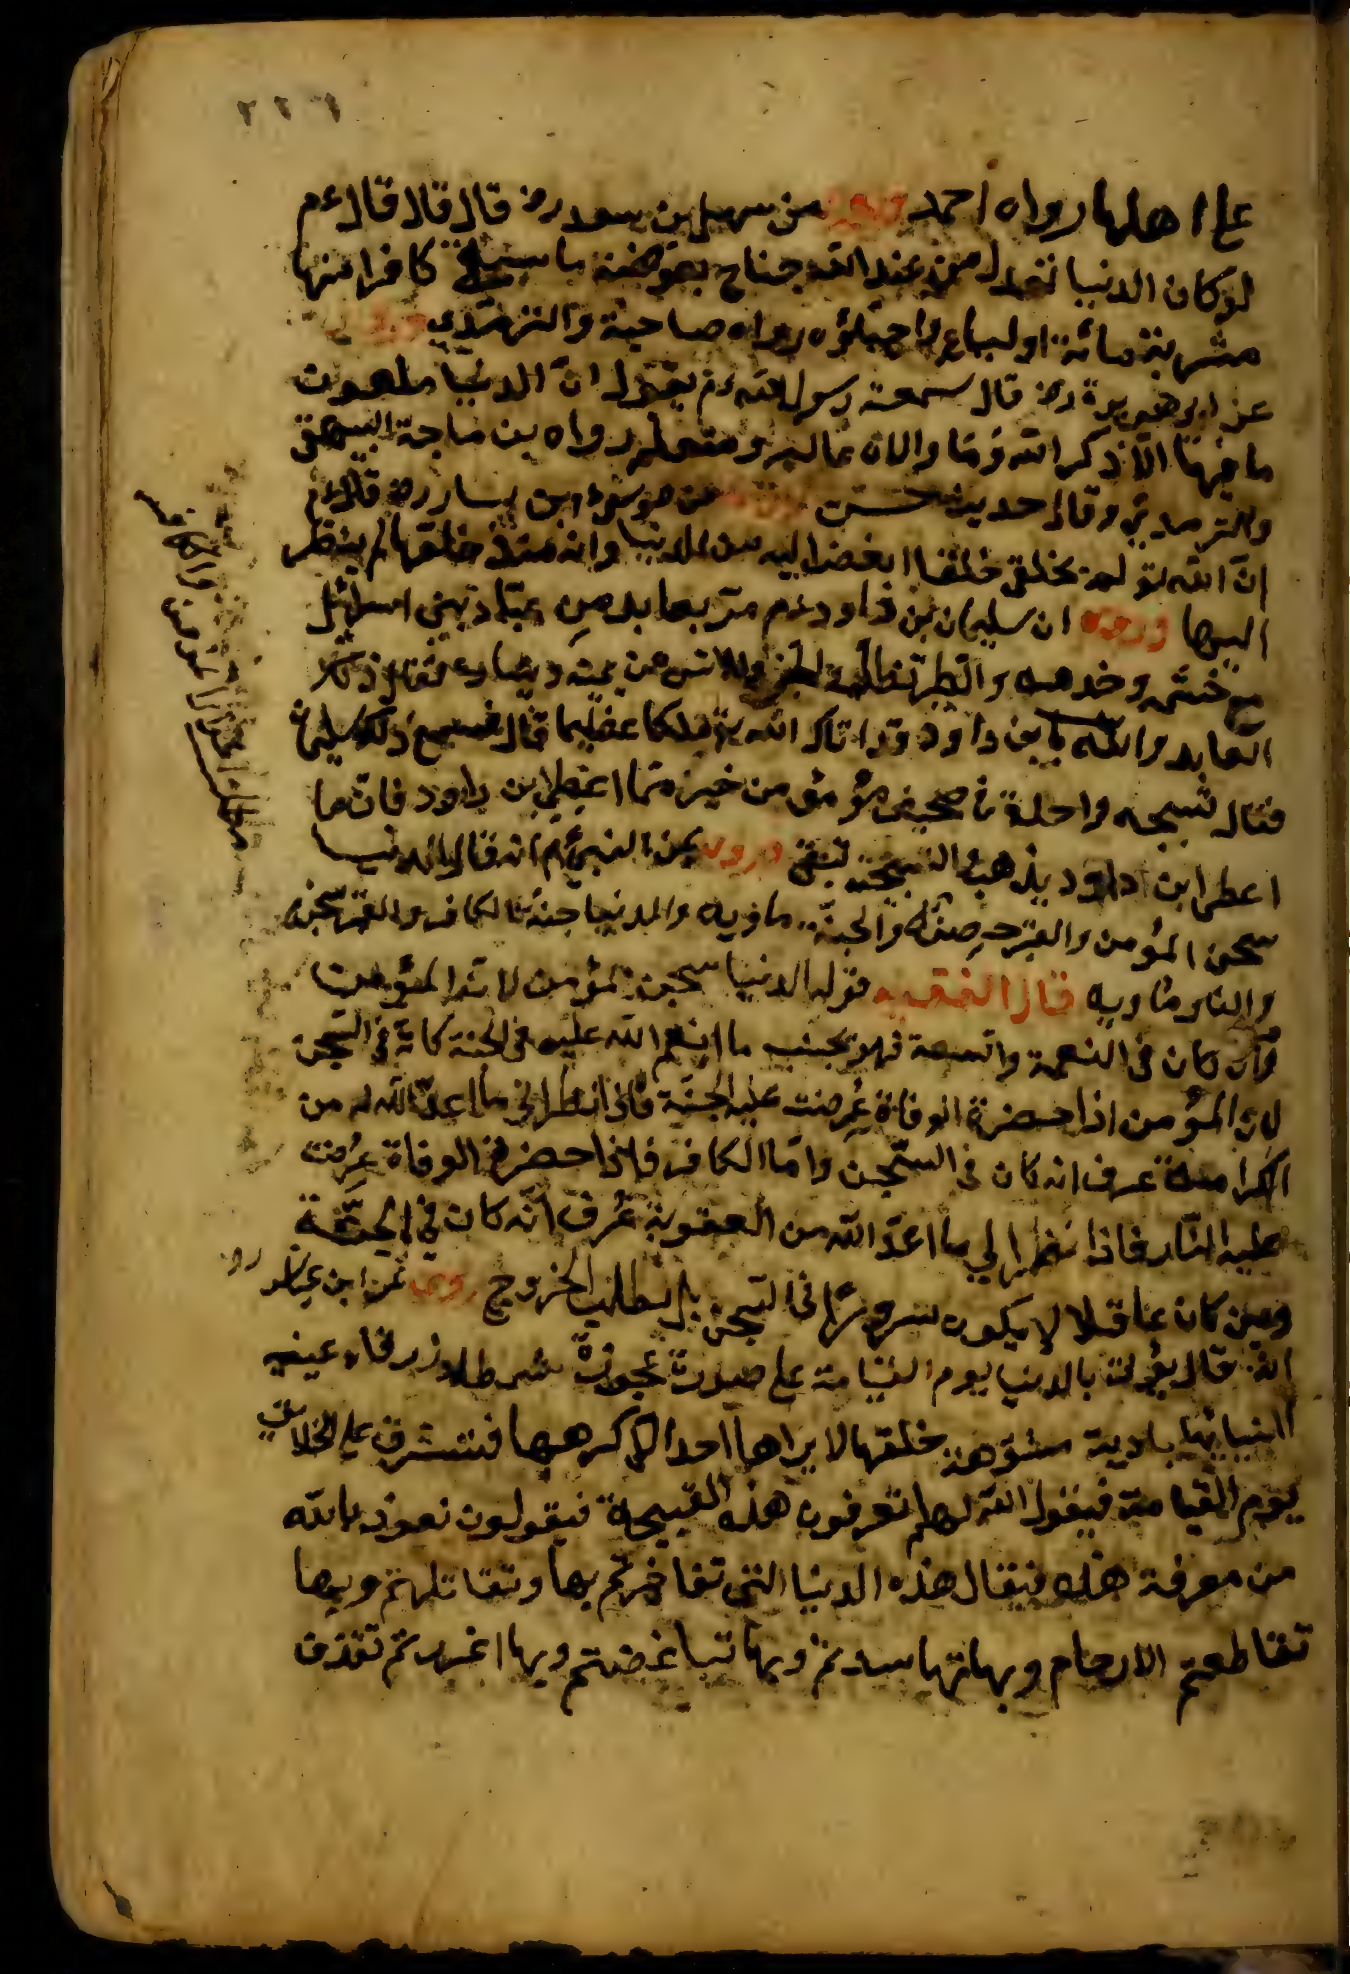 ٢٢٦
على اهلها رواه احمد وروى عن سهل بن سعد رض قال قال قال ءم
لو كان الدنيا تعدل عند الله جناح بعوضة ما سقى كافرا منها
شربة ماء رواه ماجة والترمذي وروى
عن ابو هريرة رض قال سمعت رسول الله ءم يقول ان الدنيا ملعون
ما فيها الا ذكر الله وما والاه عالم ومتعلم رواه بن ماجة البيهقى
والترمذي وقال حديث حسن عن موسى ابن يسار رض قال ءم
ان الله تع لم يخلق خلقا ابغض اليه من الدنيا وانه منذ خلقها لم ينظر
اليها وروى ان سليمان بن داود ءم مر بعابد من عباد بنى اسرائل
خشمه وخدمه والطير تظله والجن والانس عن يمينه ويساره فقال
العابد والله يا بن داود قد اتاك الله ملكا عظيما قال فسمع ذلك سليمان
فقال تسبيحه واحدة في صحيفة مؤمن من خير مما اعطى ابن داود فان ما
اعطى ابن داود يذهب التسبيحة تبقى وروى عن النبي ءم انه قال الدنيا
سجن المؤمن والقبر حصنه والجنة ماويه والدنيا جنة الكافر والقبر سجنه
والنار ماويه قال الفقيه قوله الدنيا سجن المؤمن لان المؤمن
وان كان في النعمة والسعة فهو بجنب ما انعم الله عليه في الجنة كانه في السجن
لان المؤمن اذا حضرة الوفاة عرضت عليه الجنة فاذا نظر الى ما اعد الله له من
الكرامة عرف انه كان في السجن واما الكافر فاذا حضر الوفاة عرضت
عليه النار فاذا نظر الي ما اعد الله من العقوبة عرف انه كان في الجنة
ومن كان عاقلا لا يكون سرورا في السجن بل يطلب الخروج روى عن ابن عباس رض
انه قال يؤتى بالدنيا يوم القيامة على صورة عجوزة شمطاء زرقاء عينيه
انيابها بادية مشوهة خلقها لا يراها احد الا كرهها فتشرف على الخلائق
يوم القيامة فيقول الله لهم اتعرفون هذه القبيحة فيقولون نعوذ بالله
من معرفة هذه فيقال هذه الدنيا التي تفاخرتم بها وتقاتلتم وبها
تقاطعتم الارحام وبها تحاسدتم وبها تباغضتم وبها اغررتم تقذف